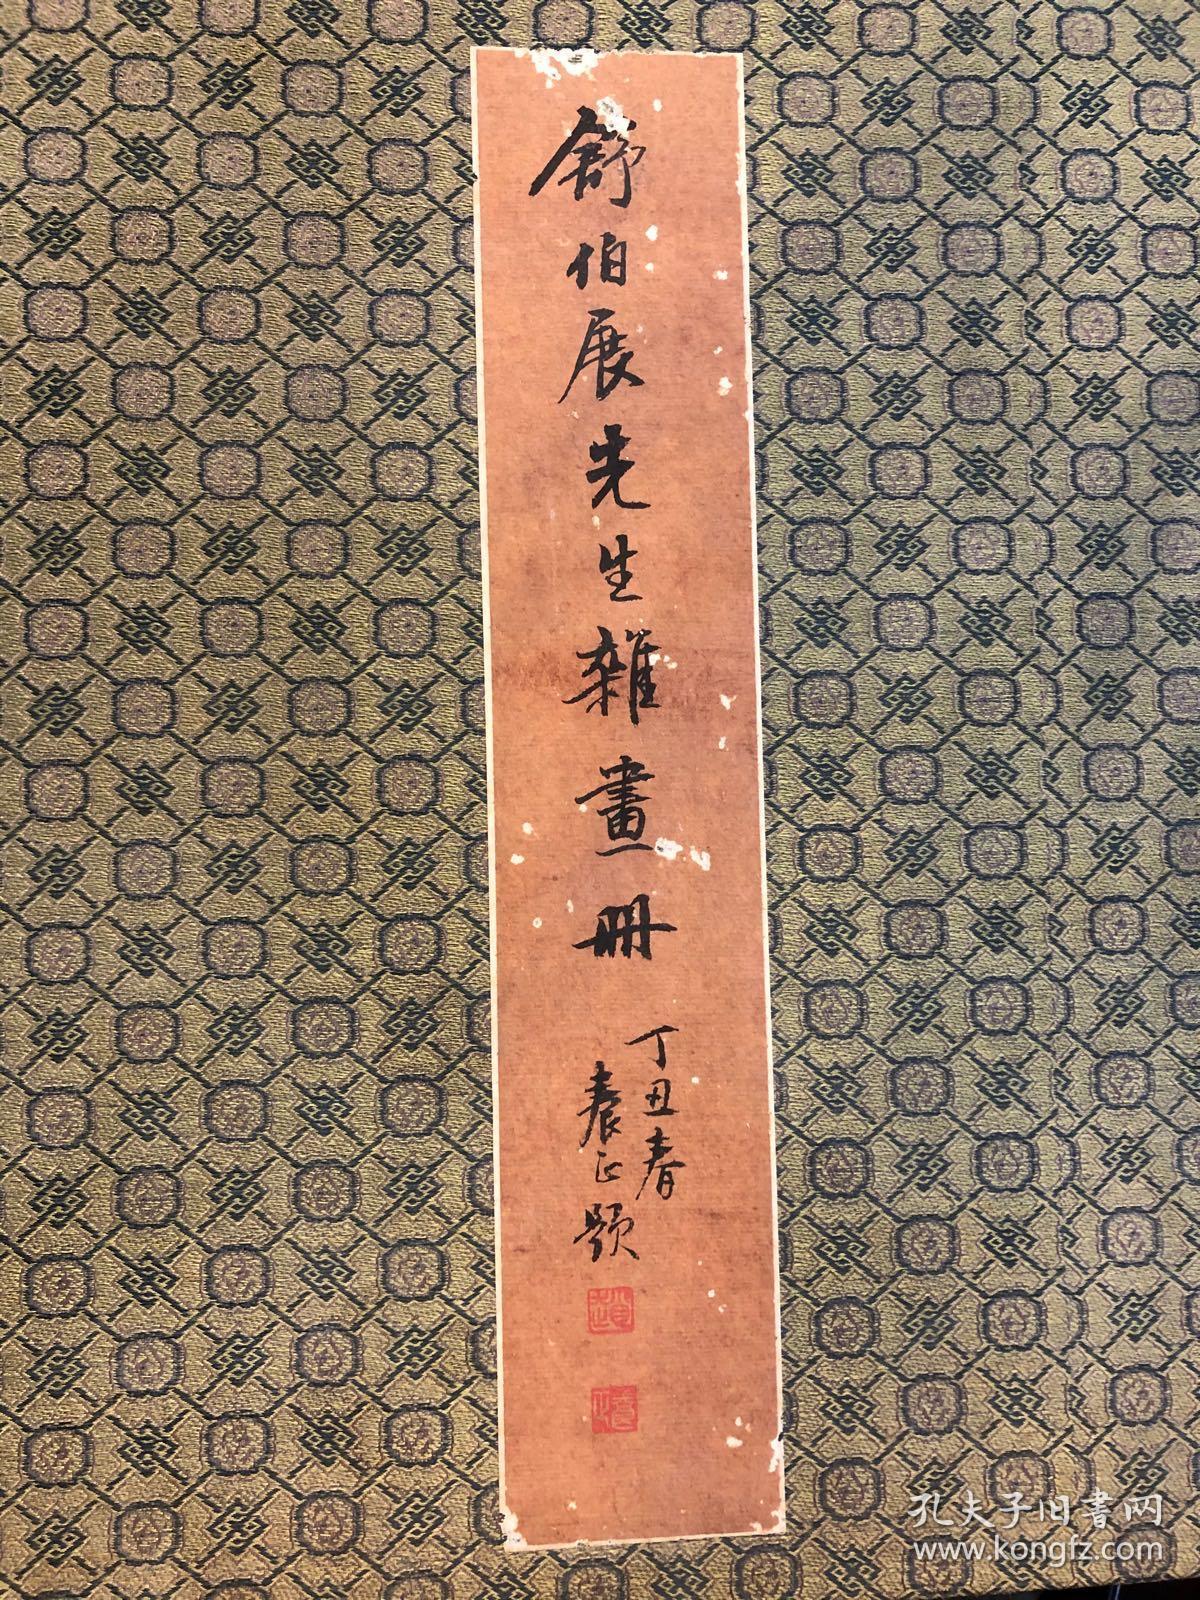 舒伯展先生雜畫冊
丁丑春
養正題
孔夫子旧書网
www.kongfz.com